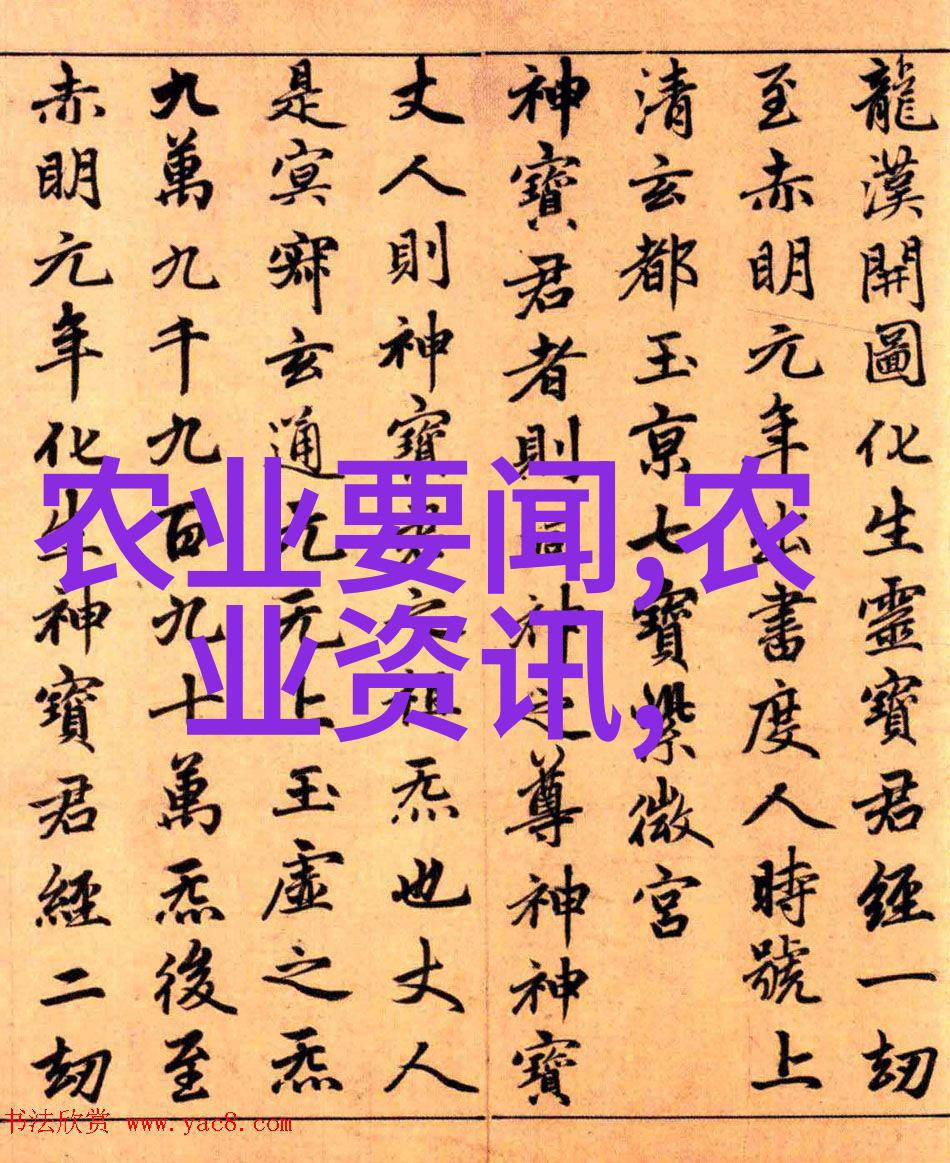 龍漢開圖化生靈寶君經一劫
至赤明元年出書度人時號上
清玄都玉京七寶紫微宮
神寶君者則神之尊神神寶
丈人則神寶君之祖炁也丈人
是寘寂玄通元无上玉虛之炁
九萬九千九百九十萬炁後至
赤明元年化生神寶君經二劫
农业要闻,农
业资讯,
书法欣赏 www.yac8.com